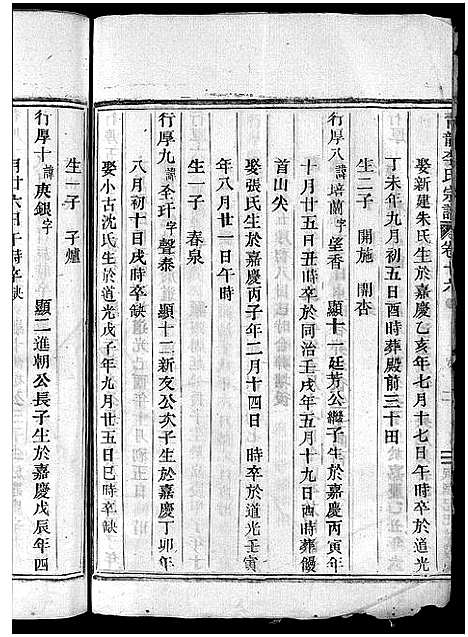 李氏宗譜 卷十六
娶新建朱氏生於嘉慶乙亥年七月十七日午時卒於道光
丁未年九月初五日酉時葬殿前三十田
生二子 開施 開杏
行厚八 諱培蘭 字望香 顯十一廷芳公繼子生於嘉慶丙寅年
十月廿五日丑時卒於同治壬戌年五月十九日酉時葬饅
首山尖
娶張氏生於嘉慶丙子年二月十四日 時卒於道光壬寅
年八月廿一日午時
生一子 春泉
行厚九 諱玉玕 字聲泰 顯十二新友公次子生於嘉慶丁卯年
八月初十日戌時卒缺
娶小古沈氏生於道光戊子年九月廿五日巳時卒缺
生一子 子爐
行厚十 諱庚銀 字 顯二進朝公長子生於嘉慶戊辰年四
月廿六日午時卒缺